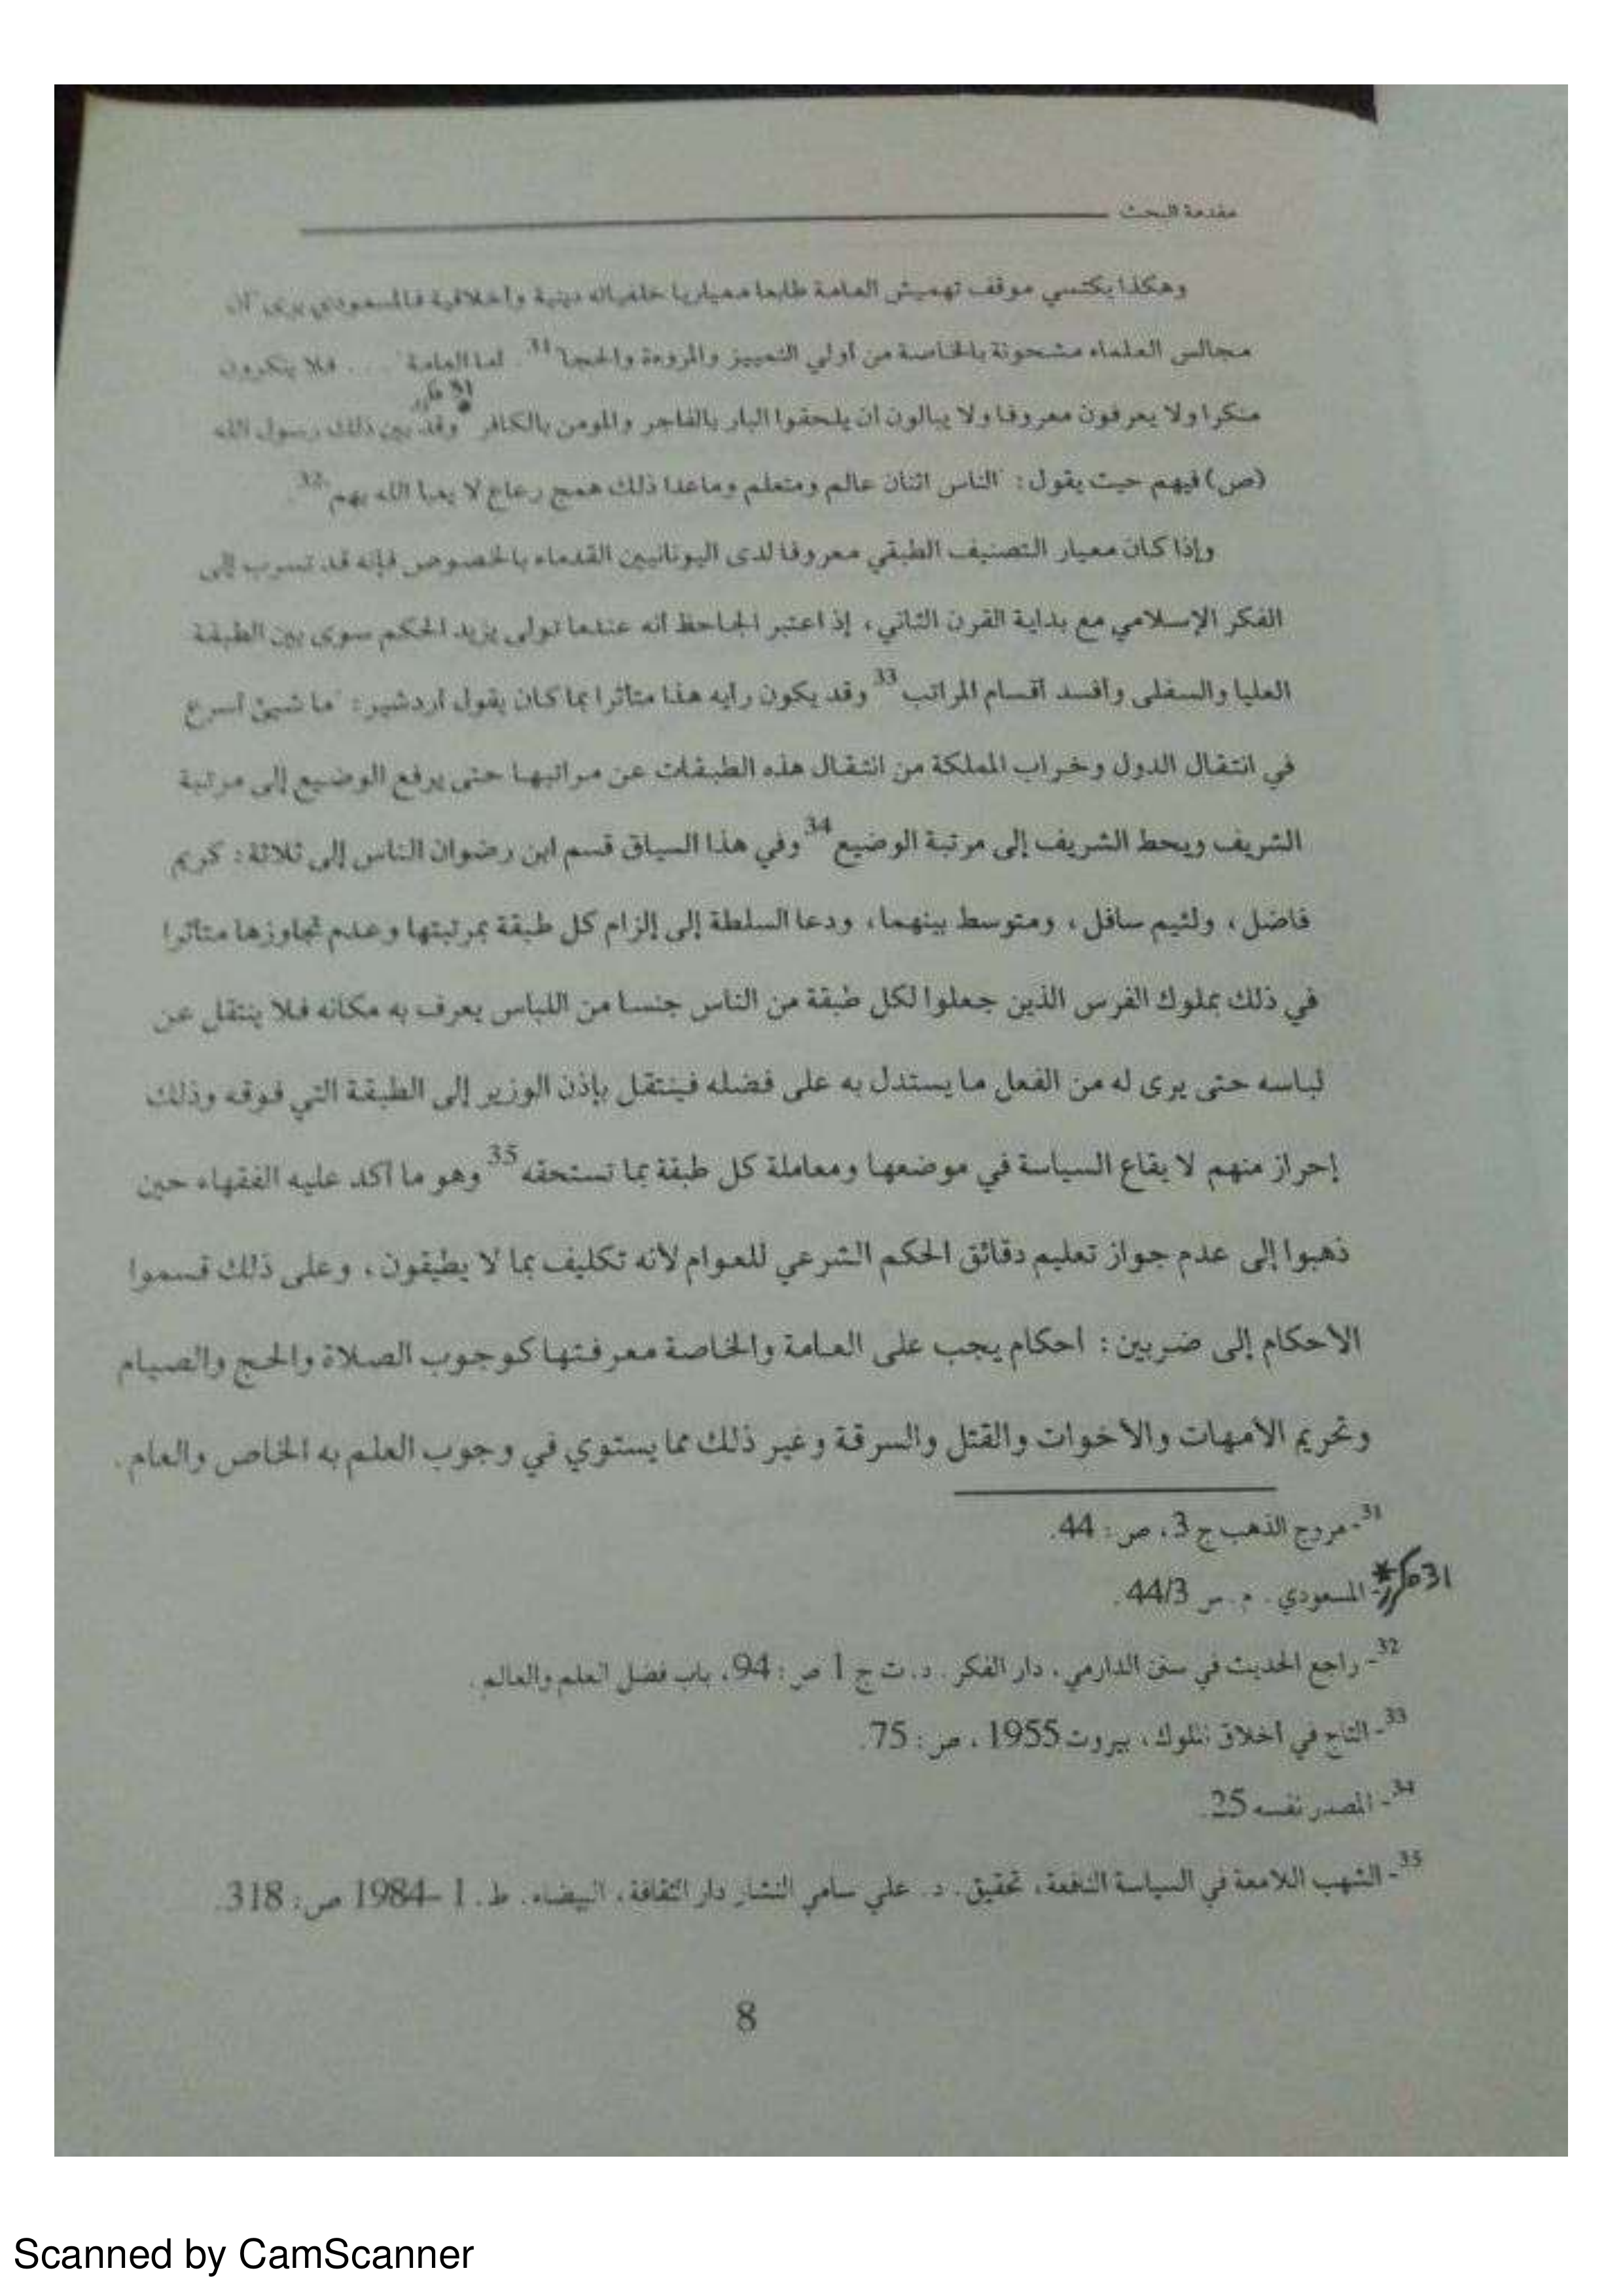 مقدمة البحث
وهكذا يكتسي موقف تهميش العامة طابعا معياريا خلفياته دينية واخلاقية فالمسعودي يرى أن
مجالس العلماء مشحونة بالخاصة من أولي التمييز والمروءة والحجا"31. أما العامة ... فلا ينكرون
31 مكرر
منكرا ولا يعرفون معروفا ولا يبالون ان يلحقوا البار بالفاجر والمومن بالكافر" وقد بين ذلك رسول الله
(ص) فيهم حيث يقول: "الناس اثنان عالم ومتعلم وماعدا ذلك همج رعاع لا يعبا الله بهم"32.
وإذا كان معيار التصنيف الطبقي معروفا لدى اليونانيين القدماء بالخصوص فإنه قد تسرب إلى
الفكر الإسلامي مع بداية القرن الثاني، إذ اعتبر الجاحظ أنه عندما تولى يزيد الحكم سوى بين الطبقة
العليا والسفلى وأفسد أقسام المراتب33 وقد يكون رأيه هذا متأثرا بما كان يقول أردشير: "ما شيئ أسرع
في انتقال الدول وخراب المملكة من انتقال هذه الطبقات عن مراتبها حتى يرفع الوضيع إلى مرتبة
الشريف ويحط الشريف إلى مرتبة الوضيع34 وفي هذا السياق قسم ابن رضوان الناس إلى ثلاثة: كريم
فاضل، ولئيم سافل، ومتوسط بينهما، ودعا السلطة إلى إلزام كل طبقة بمرتبتها وعدم تجاوزها متأثرا
في ذلك بملوك الفرس الذين جعلوا لكل طبقة من الناس جنسا من اللباس يعرف به مكانه فلا ينتقل عن
لباسه حتى يرى له من الفعل ما يستدل به على فضله فينتقل بإذن الوزير إلى الطبقة التي فوقه وذلك
إحراز منهم لا يقاع السياسة في موضعها ومعاملة كل طبقة بما تستحقه35 وهو ما أكد عليه الفقهاء حين
ذهبوا إلى عدم جواز تعليم دقائق الحكم الشرعي للعوام لأنه تكليف بما لا يطيقون، وعلى ذلك قسموا
الأحكام إلى ضربين: أحكام يجب على العامة والخاصة معرفتها كوجوب الصلاة والحج والصيام
وتحريم الأمهات والأخوات والقتل والسرقة وغير ذلك مما يستوي في وجوب العلم به الخاص والعام.
31- مروج الذهب ج 3، ص: 44.
31 مكرر* - المسعودي. م. س 44/3.
32- راجع الحديث في سنن الدارمي، دار الفكر. د. ت ج 1 ص: 94، باب فضل العلم والعالم.
33- التاج في أخلاق الملوك، بيروت 1955، ص: 75.
34- المصدر نفسه 25.
35- الشهب اللامعة في السياسة النافعة، تحقيق. د. علي سامي النشار دار الثقافة، البيضاء. ط. 1 – 1984 ص: 318.
8
Scanned by CamScanner